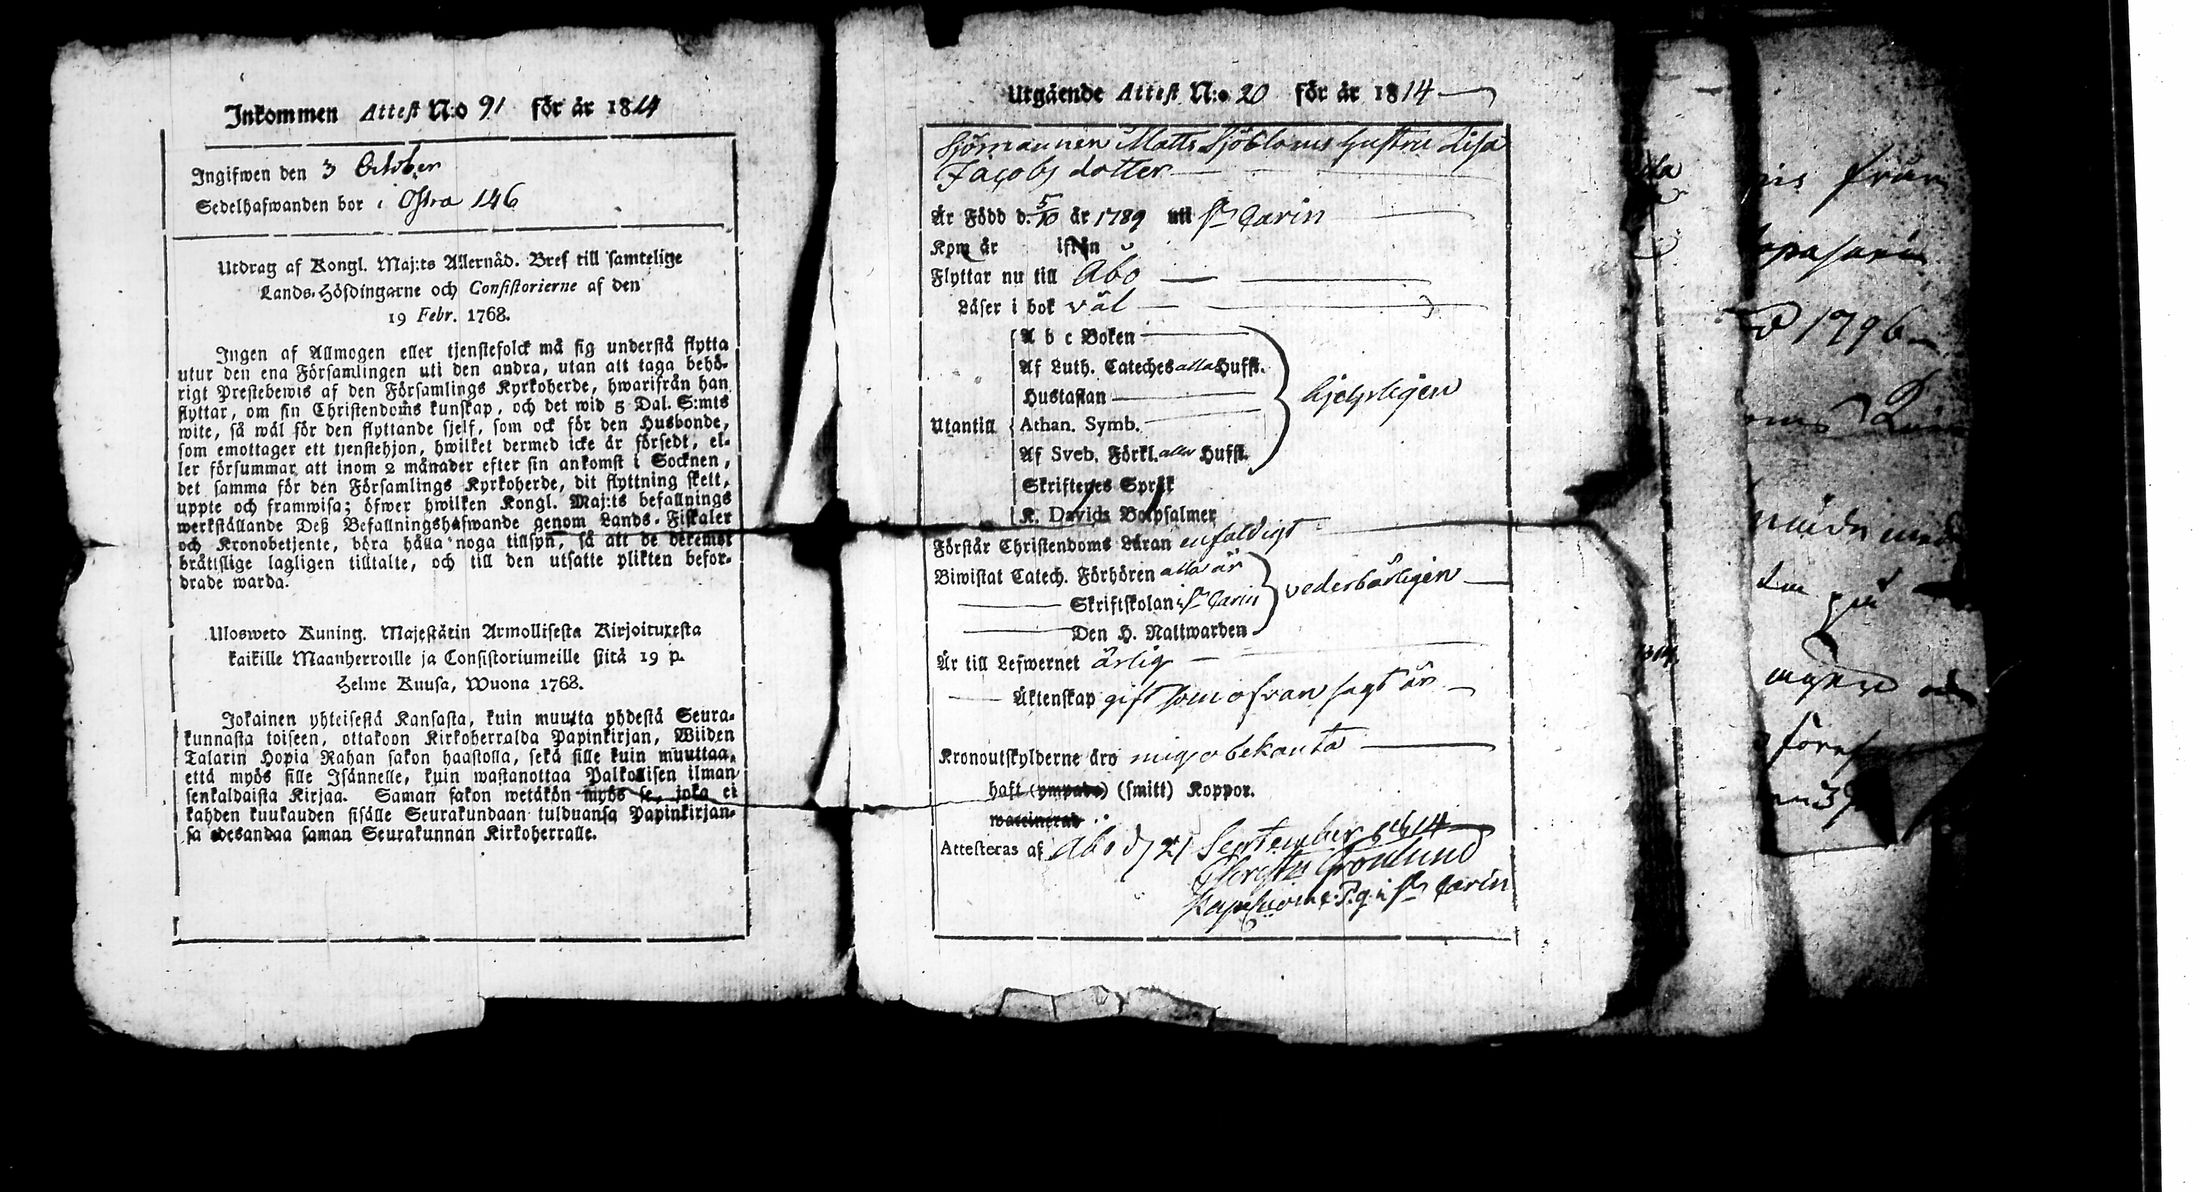 Inkommen Attest N:o 91 för år 1814
Ingifwen den 3 October
Sedelhafwanden bor i Östra 146
Utdrag af Kongl. Maj:ts Allernåd. Bref till samtelige
Lands-Höfdingarne och Consistorierne af den
19 Febr. 1768.
Ingen af Allmogen eller tjenstefolck må sig understå flytta
utur den ena Församlingen uti den andra, utan att taga behö-
rigt Prestebewis af den Församlings Kyrkoherde, hwarifrån han
flyttar, om sin Christendoms kunskap, och det wid 5 Dal. S:mts
wite, så wäl för den flyttande sjelf, som ock för den Husbonde,
som emottager ett tjenstehjon, hwilket dermed icke är försedt, el-
ler försummar att inom 2 månader efter sin ankomst i Socknen,
det samma för den Församlings Kyrkoherde, dit flyttning skett,
uppte och framwisa; öfwer hwilken Kongl. Maj:ts befallnings
werkställande Deß Befallningshafwande genom Lands-Fiskaler
och Kronobetjente, böra hålla noga tillsyn, så att de deremot
bråttslige lagligen tilltalte, och till den utsatte plikten befor-
drade warda.
Ulosweto Kuning. Majestätin Armollisesta Kirjoituxesta
kaikille Maanherroille ja Consistoriumeille siitä 19 p.
Helme Kuusa, Wuona 1768.
Jokainen yhteisestä Kansasta, kuin muutta yhdestä Seura-
kunnasta toiseen, ottakoon Kirkoherralda Papinkirjan, Wiiden
Talarin Hopia Rahan sakon haastolla, sekä sille kuin muuttaa,
että myös sille Isännelle, kuin wastanottaa Palkolisen ilman
senkaldaista Kirjaa. Saman sakon wetäkön myös se, joka ei
kahden kuukauden sisälle Seurakundaan tulduansa Papinkirjan-
sa edesandaa saman Seurakunnan Kirkoherralle.
Utgående Attest N:o 20 för år 1814
Sjömannen Matts Sjöbloms hustru Lisa
Jacobs dotter
Är Född d. 5/10 år 1789 uti St Carin
Kom år ifrån
Flyttar nu till Åbo
Läser i bok väl
A b c Boken
Af Luth. Cateches alla Hufst.
Hustaflan
Utantill Athan. Symb.
Af Sveb. Förkl. alla Hufst.
Skriftenes Språk
K. Davids Botpsalmer
hjelpligen
Förstår Christendoms Läran enfaldigt
Biwistat Catech. Förhören alla år
Skriftskolan i St Carin
Den H. Nattwarden
vederbörligen
Är till Lefwernet ärlig
Äktenskap gift som ofvan sagt är
Kronoutskylderne äro mig obekanta
haft (ympade) (smitt) Koppor.
waccinerad
Attesteras af Åbo d 21 September 1814
Grönlund
i St Carin
från
1796